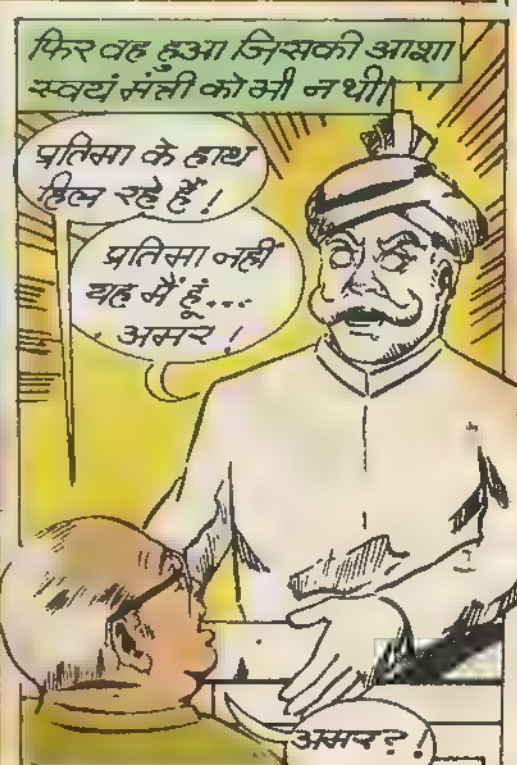 फिर वह हुआ जिसकी आशा
स्वयं मंत्री को भी न थी।
प्रतिमा के हाथ
हिल रहे हैं!
प्रतिमा नहीं
यह मैं हूं...
अमर!
अमर?!